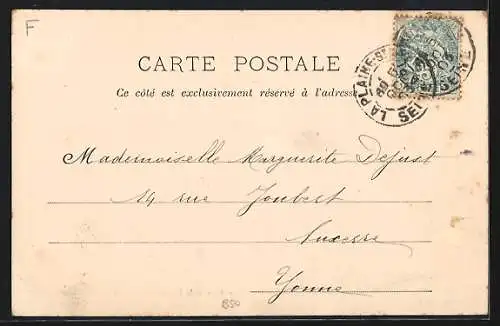 F
CARTE POSTALE
Ce côté est exclusivement réservé à l'adresse
LA PLAINE-ST
SEINE
Mademoiselle Marguerite Dejust
14 rue Joubert
Auxerre
Yonne
850